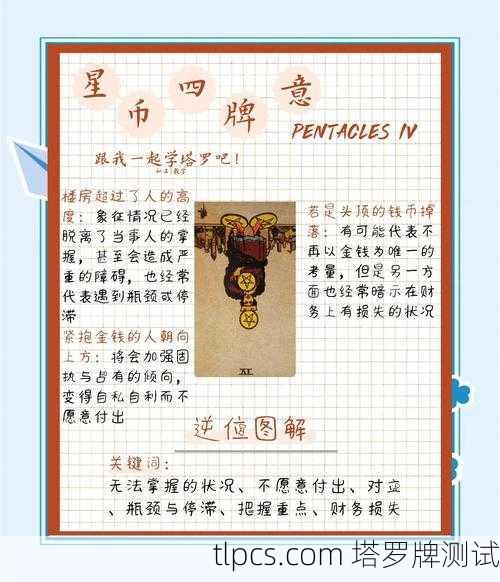 星币四牌意
PENTACLES IV
跟我一起学塔罗吧！
楼房超过了人的高
度：象征情况已经
脱离了当事人的掌
握，甚至会造成严
重的障碍，也经常
代表遇到瓶颈或停
滞
紧抱金钱的人朝向
上方：将会加强固
执与占有的倾向，
变得自私自利而不
愿意付出
若是头顶的钱币掉
落：有可能代表不
再以金钱为唯一的
考量，但是另一方
面也经常暗示在财
务上有损失的状况
IV
逆位图解
关键词：
无法掌握的状况、不愿意付出、对立
、瓶颈与停滞、把握重点、财务损失
tlpcs.com 塔罗牌测试